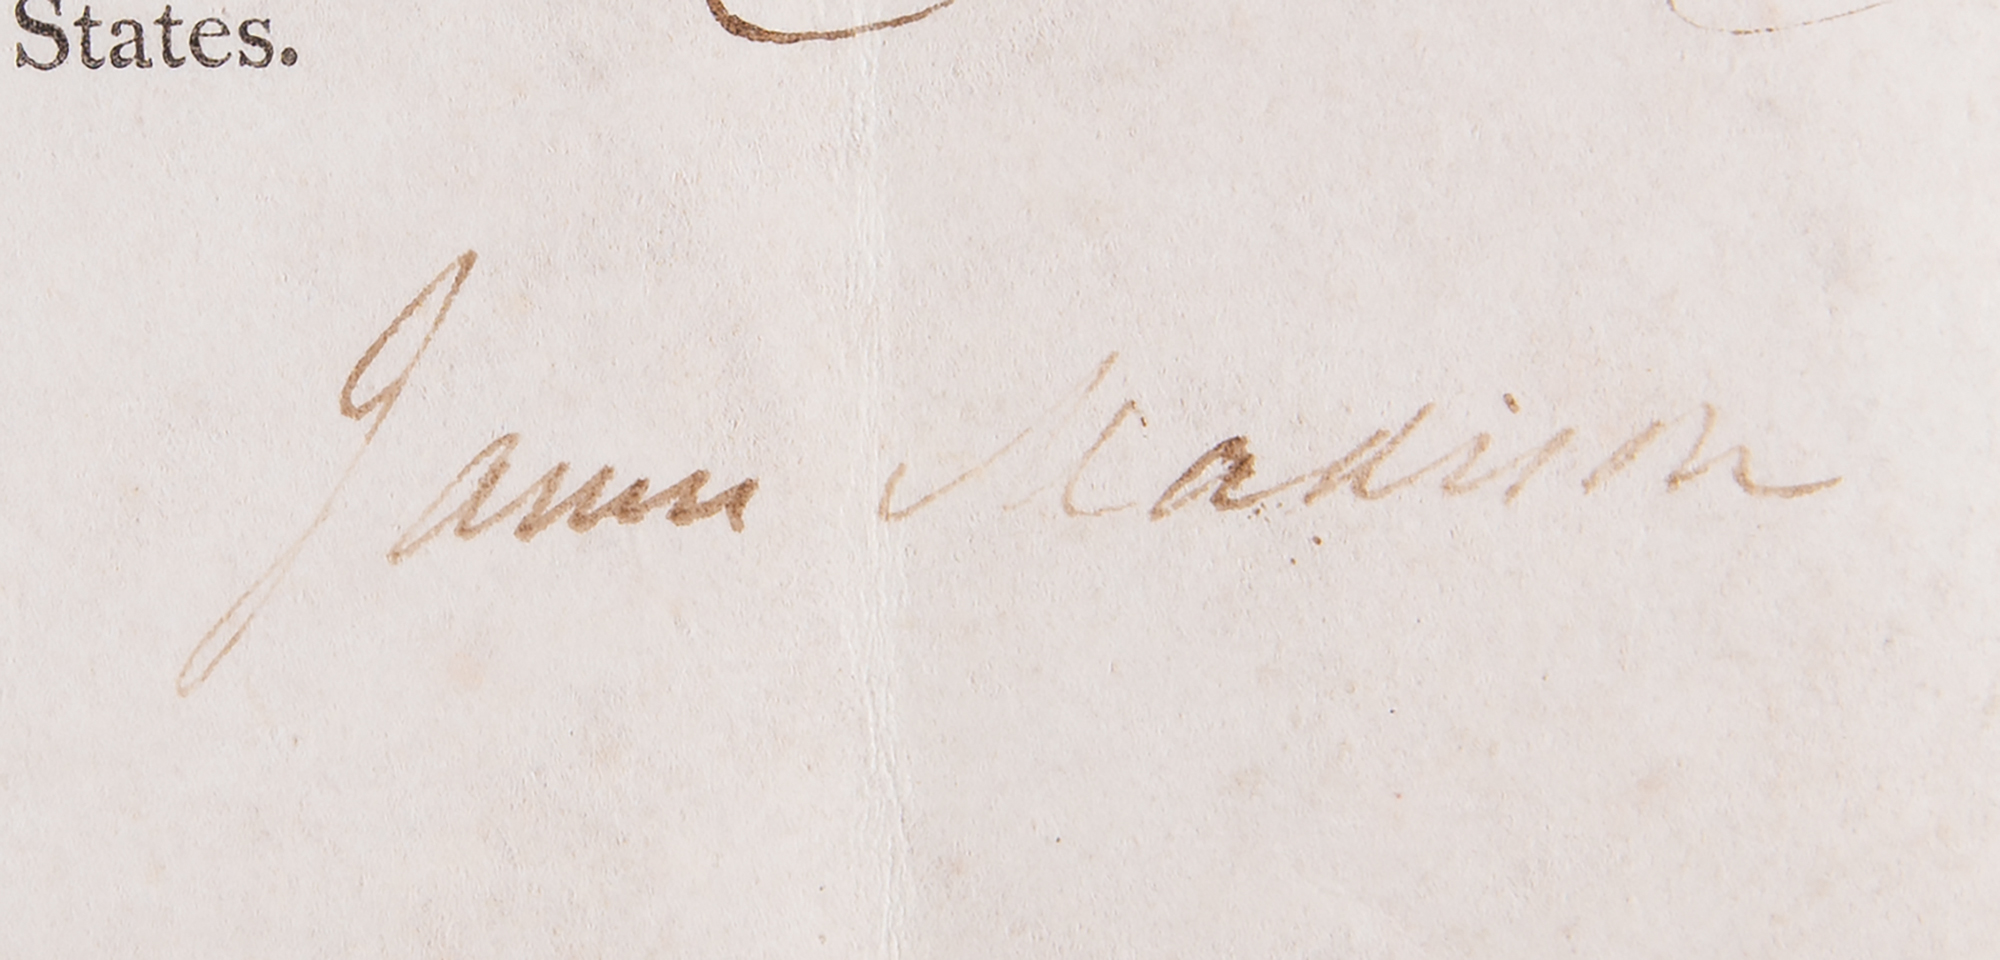 States.
James Madison